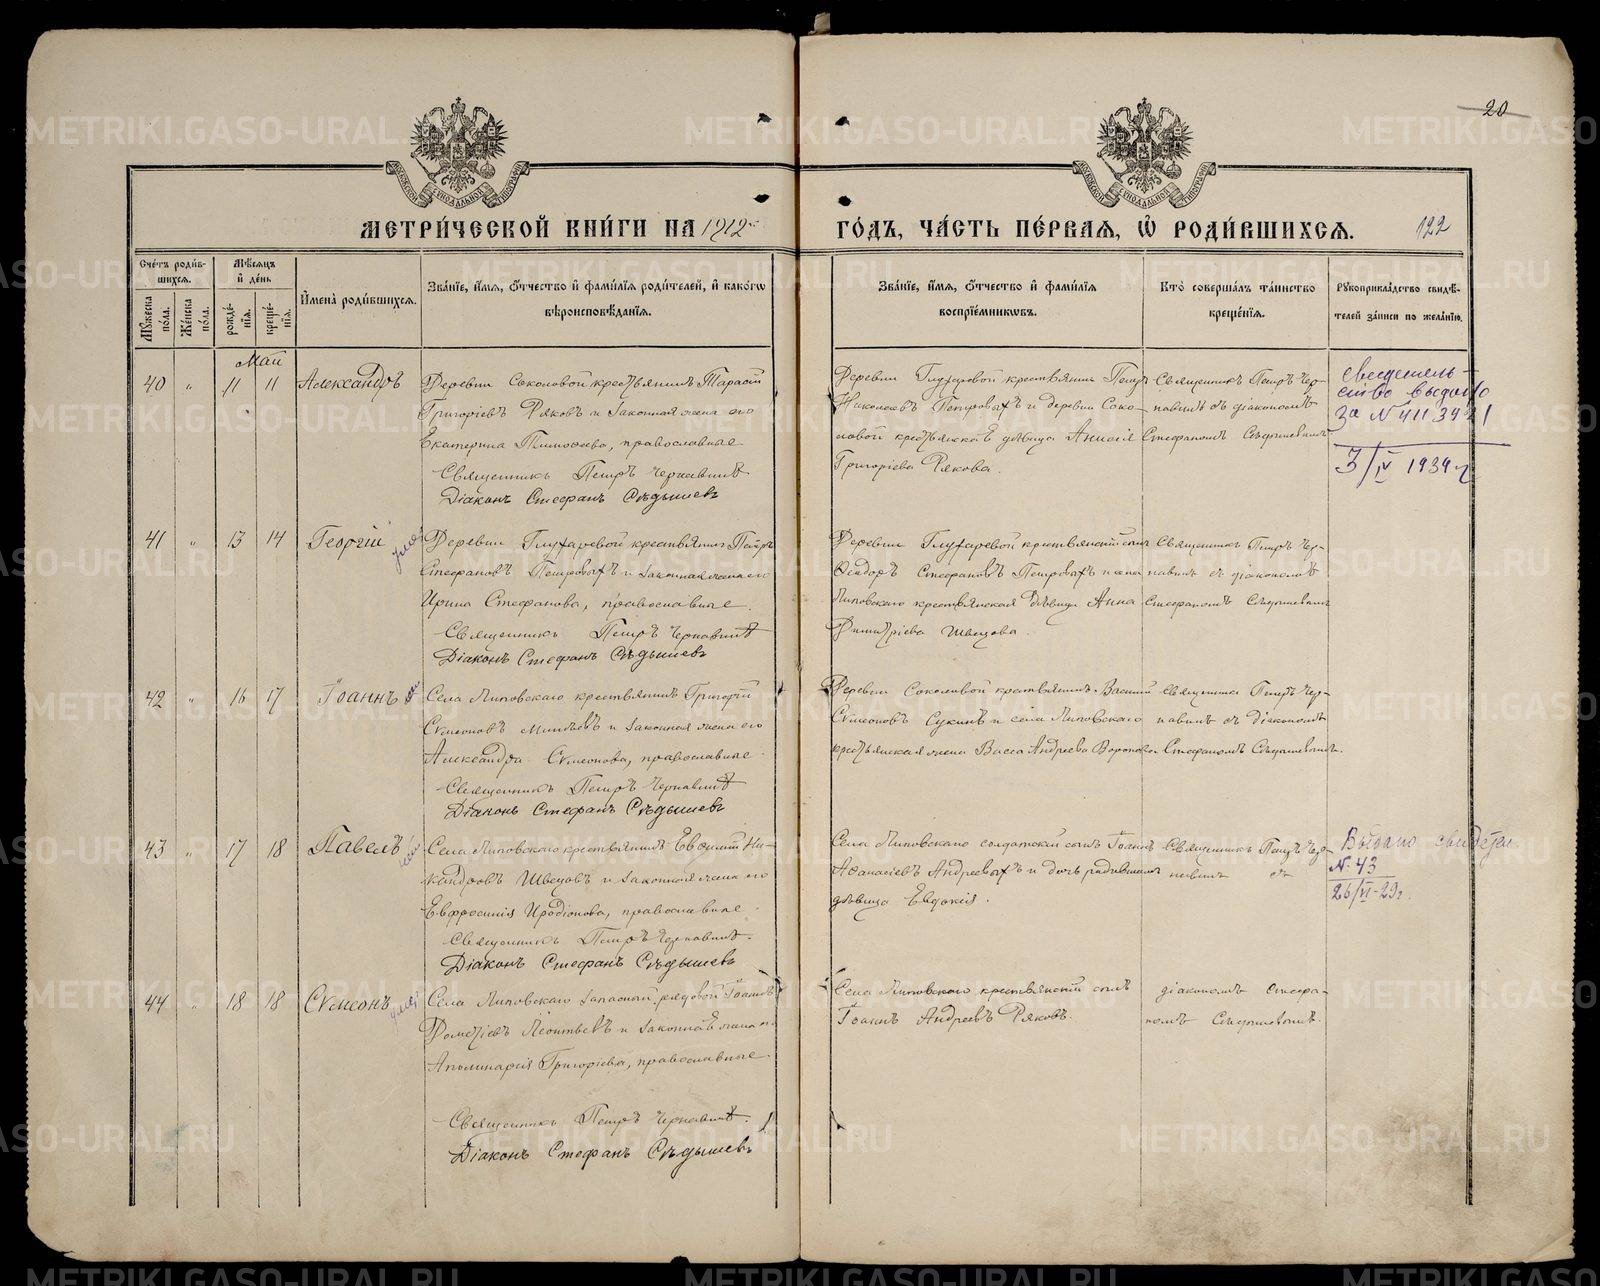 20
МОСКОВСКОЙ СѴНОДАЛЬНОЙ ТИПОГРАФІИ
МОСКОВСКОЙ СѴНОДАЛЬНОЙ ТИПОГРАФІИ
МЕТРИ́ЧЕСКОЙ КНИ́ГИ НА 1912
ГО́ДЪ, ЧА́СТЬ ПЕ́РВАЯ, Ѡ҆ РОДИ́ВШИХСЯ.
122
Сче́тъ роди́в-
шихся.
Мѣ́сяцъ
и҆ де́нь
Му́жеска по́ла.
Же́нска по́ла.
рожде́-
нїя.
креще́-
нїя.
И҆мена̀ роди́вшихся.
Зва́нїе, и҆́мя, о҆́тчество и҆ фами́лїя роди́телей, и҆ како́гѡ
вѣроисповѣ́данїя.
Зва́нїе, и҆́мя, о҆́тчество и҆ фами́лїя
воспрїе́мникѡвъ.
Кто̀ соверша́лъ та́инство
креще́нїя.
Рꙋкоприкла́дство свидѣ́-
телей за́писи по жела́нїю.
Май
40 " 11 11 Александръ
Деревни Соколовой крестьянинъ Тарасій
Григоріевъ Ряковъ и законная жена его
Екатерина Тимофеева, православные
Священникъ Петръ Чернавинъ
Діаконъ Стефанъ Сѣдышевъ
Деревни Глухаревой крестьянинъ Петръ
Николаевъ Петровыхъ и деревни Соко-
ловой крестьянская дѣвица Анисія
Григоріева Рякова.
Священникъ Петръ Чер-
навинъ съ діакономъ
Стефаномъ Сѣдышевымъ
Свидетель-
ство выдано
за N 411
3/IV 1934 г
41 " 13 14 Георгій
Деревни Глухаревой крестьянинъ Петръ
Стефановъ Петровыхъ и законная жена его
Ирина Стефанова, православные.
Священникъ Петръ Чернавинъ
Діаконъ Стефанъ Сѣдышевъ
Деревни Глухаревой крестьянскій сынъ
Ѳеодоръ Стефановъ Петровыхъ и села
Липовскаго крестьянская дѣвица Анна
Димитріева Швецова.
Священникъ Петръ Чер-
навинъ съ діакономъ
Стефаномъ Сѣдышевымъ
42 " 16 17 Іоаннъ
Села Липовскаго крестьянинъ Григорій
Сѵмеоновъ и законная жена его
Александра Сѵмеонова, православные.
Священникъ Петръ Чернавинъ
Діаконъ Стефанъ Сѣдышевъ
Деревни Соколовой крестьянинъ Василій
Сѵмеоновъ Сукинъ и села Липовскаго
крестьянская жена Васса Андреева Воронова.
Священникъ Петръ Чер-
навинъ съ діакономъ
Стефаномъ Сѣдышевымъ.
43 " 17 18 Павелъ
Села Липовскаго крестьянинъ Евѳимій Ни-
кандровъ Швецовъ и законная жена его
Евфросинія Иродіонова, православные.
Священникъ Петръ Чернавинъ.
Діаконъ Стефанъ Сѣдышевъ
Села Липовскаго солдатскій сынъ Іоаннъ
Аѳанасіевъ Андреевыхъ и дочь
дѣвица Евдокія.
Священникъ Петръ Чер-
навинъ съ
Выдано свидетел
N. 43
26/VI-29г.
44 " 18 18 Сѵмеонъ
Села Липовскаго запасный рядовой Іоаннъ
Дометіевъ Леонтьевъ и законная жена его
Аполинарія Григоріева, православные.
Священникъ Петръ Чернавинъ.
Діаконъ Стефанъ Сѣдышевъ
Села Липовскаго крестьянскій сынъ
Іоаннъ Андреевъ Ряковъ.
діакономъ Стефа-
номъ Сѣдышевымъ.
METRIKI.GASO-URAL.RU